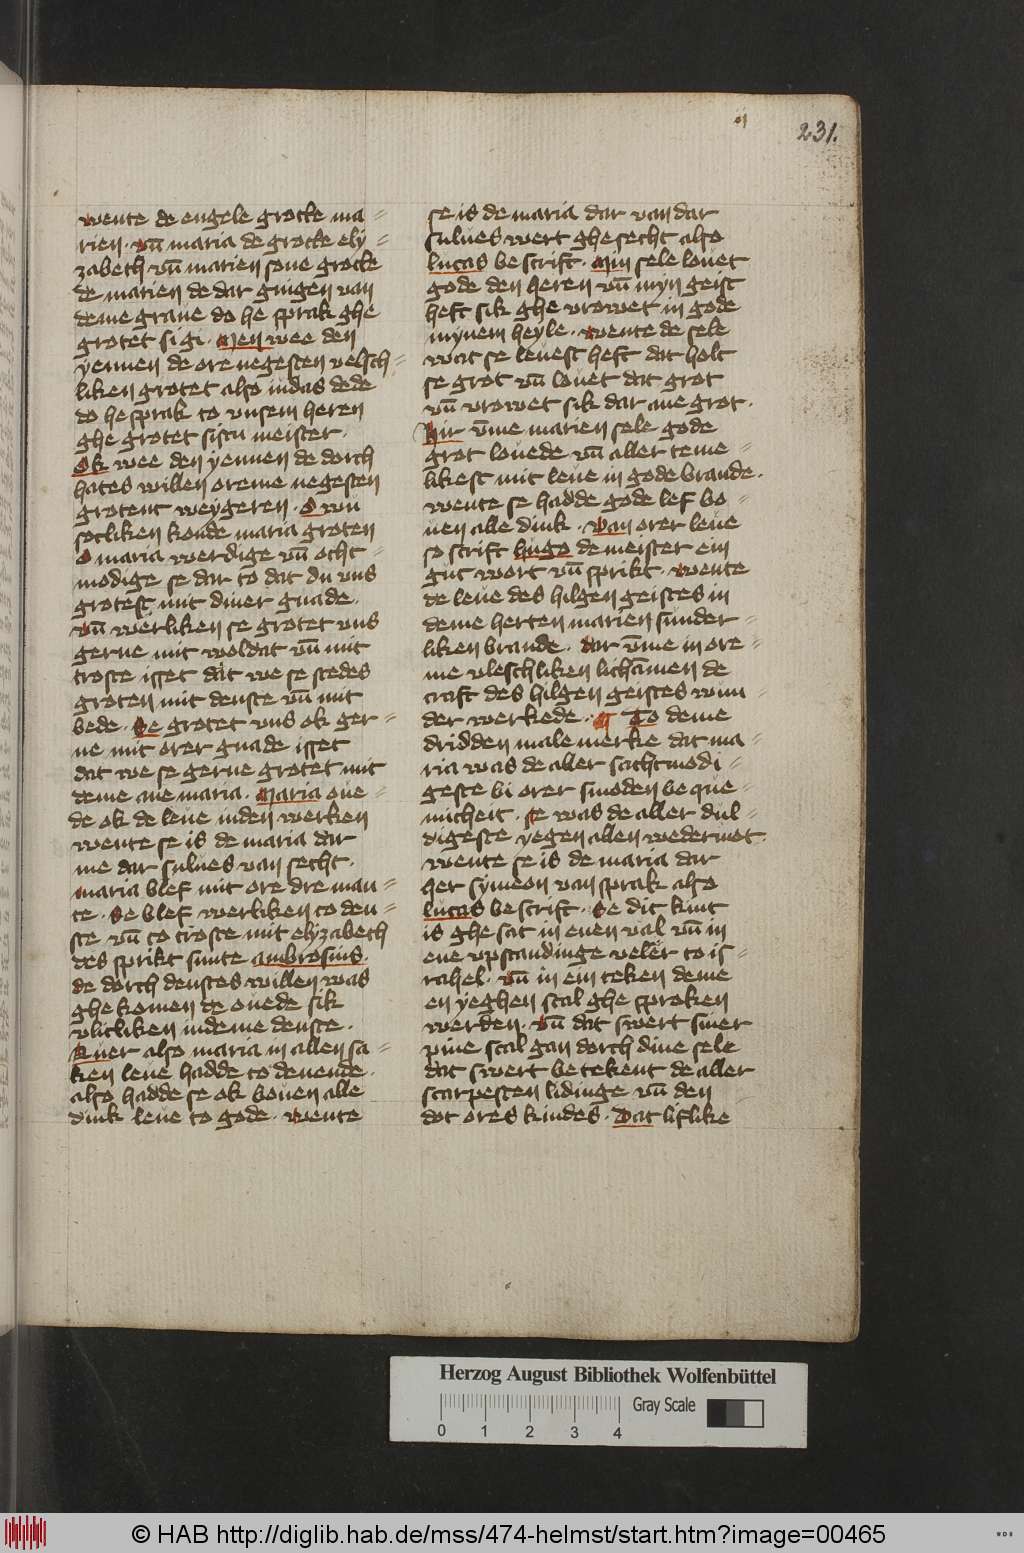 ij
231.
wente de engele grocte ma=
rien. vn̄ maria de grocte ely=
zabech vn̄ marien sone grocte
de marien de dar gingen van
deme graue do he sprak ghe
grotet si gi. Men wee den
yennen de ore negesten velsch=
liken grotet also iudas dede
do he sprak to vnsem heren
ghe grotet sistu meister.
Ok wee den yennen de dorch
hates willen oreme negesten
grotent weygeren. O wu
sotliken konde maria groten
O maria werdige vn̄ otht=
modige se dar to dat du vns
grotest mit diner gnade.
vn̄ werliken se grotet vns
gerne mit woldat vn̄ mit
troste isset dat we se stedes
groten mit denste vn̄ mit
bede. Se grotet vns ok ger=
ne mit orer gnade isset
dat we se gerne grotet mit
deme aue maria. Maria oue=
de ok de leue inden werken
wente se is de maria dar
me dar sulues van secht.
maria blef mit ore dre man=
te. Se blef werliken to den=
ste vn̄ to troste mit elyzabech
des sprikt sunte ambrosius.
de dorch denstes willen was
ghe komen de ouede sik
vlitliken indeme denste.
Auer also maria in allen sa=
ken leue hadde to deuende.
also hadde se ok bouen alle
dink leue to gode. wente
se is de maria dar van dar
sulues wert ghe secht also
lucas be scrift. Min sele louet
gode den heren vn̄ myn geist
heft sik ghe vrowet in gode
mynem heyle. wente de sele
wat se leuest heft dat holt
se grot vn̄ louet dat grot
vn̄ vrowet sik dar aue grot.
Hir vm̄e marien sele gode
grot louede vn̄ aller teme=
likest mit leue in gode brande.
wente se hadde gode lef bo=
uen alle dink. Van orer leue
so scrift hugo de meister ein
gut wort vn̄ sprikt. wente
de leue des hilgen geistes in
deme herten marien sunder=
liken brande. dar vm̄e in ore=
me vleschliken licham̄en de
craft des hilgen geistes wun=
der werkede. ¶ To deme
dridden male merke dat ma=
ria was de aller sachtmodi=
geste bi orer sinoden be que=
micheit. se was de aller dul=
digeste yegen allen wedermot.
wente se is de maria dar
her symeon van sprak also
lucas be scrift. Se dit kint
is ghe sat in enen val vn̄ in
ene vpstandinge veler to is=
rahel. vn̄ in ein teken deme
en yeghen scal ghe sproken
werden. vn̄ dat swert siner
pine scal gan dorch dine sele
dat swert be tekent de aller
scarpesten lidinge vn̄ den
dot ores kindes. Dat liflike
Herzog August Bibliothek Wolfenbüttel
Gray Scale
0 1 2 3 4
© HAB http://diglib.hab.de/mss/474-helmst/start.htm?image=00465